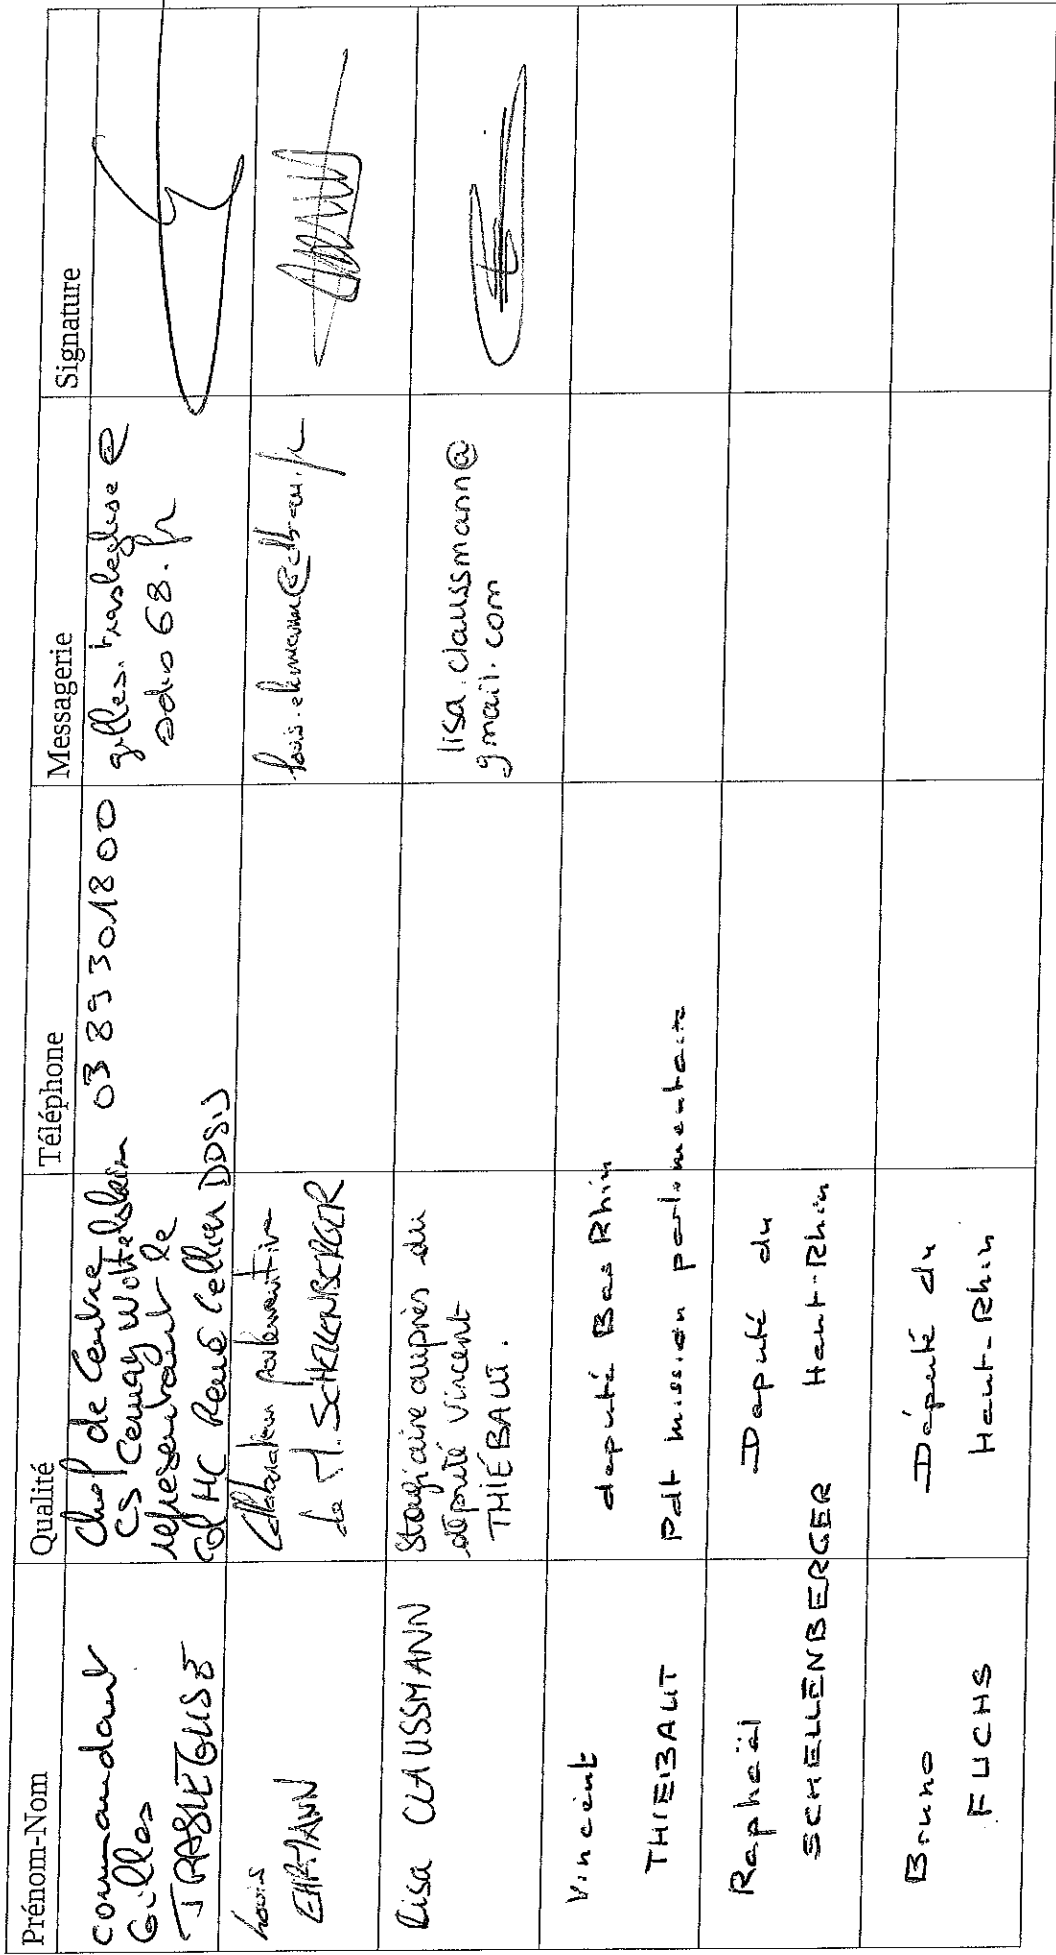 Prénom-Nom Qualité Téléphone Messagerie Signature
commandant
Gilles
TRASLEGLISE
Chef de Centre
CS Cernay Wittelsheim
représentant le
Col HC René Cellier DDSIS
03 89 30 18 00
gilles.traleglise@
sdis68.fr
Louis
EHRMANN
Collaborateur parlementaire
de M. SCHELLENBERGER
Lisa CLAUSSMANN
Stagiaire auprès du
député Vincent
THIÉBAUT.
lisa.claussmann@
gmail.com
Vincent
THIEBAUT
député Bas Rhin
Pdt mission parlementaire
Raphaël
SCHELLENBERGER
Député du
Haut-Rhin
Bruno
FUCHS
Député du
Haut-Rhin